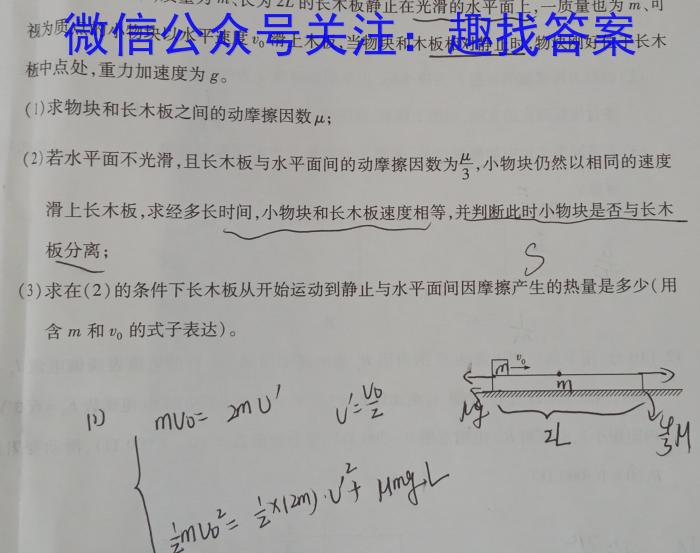 质量为m、长为2L的长木板静止在光滑的水平面上,一质量也为m、可
视为质点的小物块以水平速度v₀滑上木板,当物块和木板相对静止时,物块刚好位于长木
微信公众号关注:趣找答案
板中点处,重力加速度为g。
(1)求物块和长木板之间的动摩擦因数μ;
(2)若水平面不光滑,且长木板与水平面间的动摩擦因数为μ/3,小物块仍然以相同的速度
滑上长木板,求经多长时间,小物块和长木板速度相等,并判断此时小物块是否与长木
板分离;
S
(3)求在(2)的条件下长木板从开始运动到静止与水平面间因摩擦产生的热量是多少(用
含m和v₀的式子表达)。
m v₀
m
μg
2L
(1) mv₀ = 2mv' v' = v₀/2
½mv₀² = ½×(2m)·v'² + μmg·L